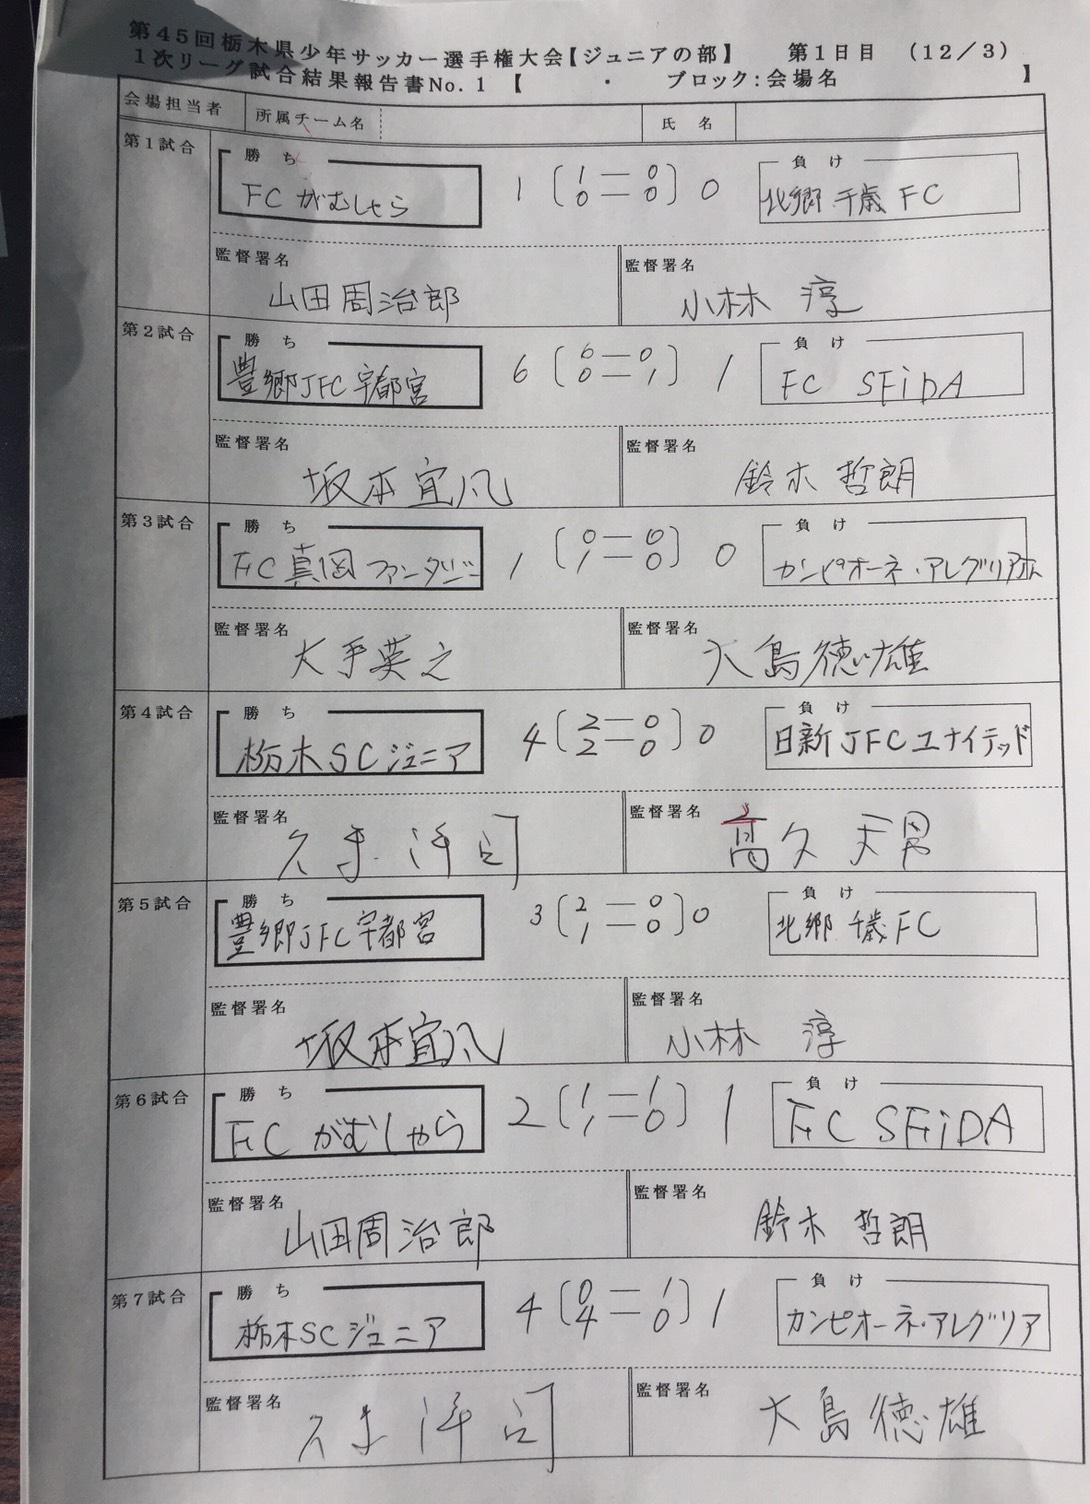 第45回栃木県少年サッカー選手権大会【ジュニアの部】　第1日目　（12／3）
1次リーグ試合結果報告書No.1　【　・　ブロック:会場名　】
会場担当者　所属チーム名　氏　名
第1試合　勝　ち　負　け
FC がむしゃら　1（1＝0　0）0　北郷 千歳 FC
0　0
監督署名　監督署名
山田周治郎　小林　淳
第2試合　勝　ち　負　け
豊郷JFC宇都宮　6（6＝0　）1　FC SFiDA
0　1
監督署名　監督署名
坂本宜凡　鈴木 哲朗
第3試合　勝　ち　負　け
FC真岡ファンタジー　1（0＝0　）0　カンピオーネ・アレグリア
1　0
監督署名　監督署名
大手英之　大島徳雄
第4試合　勝　ち　負　け
栃木SCジュニア　4（2＝0　）0　日新JFCユナイテッド
2　0
監督署名　監督署名
洋司　高久 天男
第5試合　勝　ち　負　け
豊郷JFC宇都宮　3（2＝0　）0　北郷 千歳FC
1　0
監督署名　監督署名
坂本宜凡　小林　淳
第6試合　勝　ち　負　け
FC がむしゃら　2（1＝1　）1　FC SFiDA
1　0
監督署名　監督署名
山田周治郎　鈴木 哲朗
第7試合　勝　ち　負　け
栃木SCジュニア　4（0＝1　）1　カンピオーネ・アレグリア
4　0
監督署名　監督署名
洋司　大島徳雄